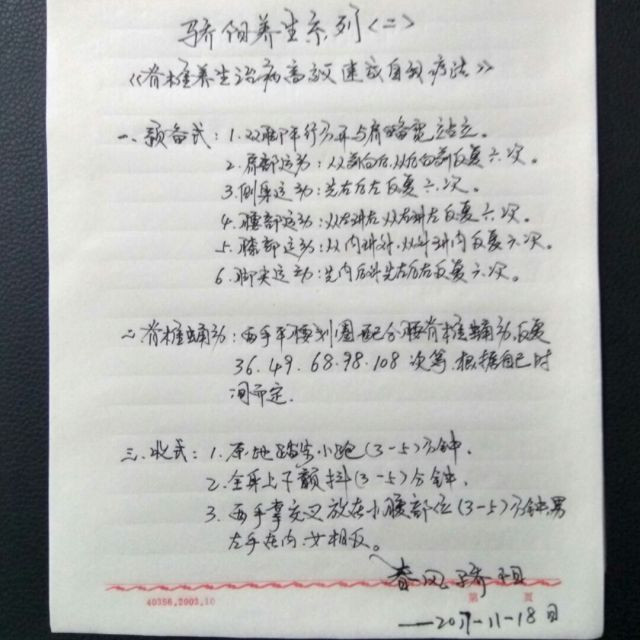 骄阳养生系列<二>
《脊椎养生治病高效速效自我疗法》
一、预备式：1.双脚平行分开与肩略宽站立。
2.肩部运动：从前向后，从后向前反复六次。
3.侧身运动：先右后左反复六次。
4.腰部运动：从左往右，从右往左反复六次。
5.膝部运动：从内往外，从外往内反复六次。
6.脚尖运动：先内后外先左后右反复六次。
二、脊椎蛹动：两手平腰划圈配合腰脊椎蛹动，反复
36.49.68.98.108次等，根据自己时
间而定.
三、收式：1.原地踏步小跑(3-5)分钟.
2.全身上下颤抖(3-5)分钟.
3.两手掌交叉放在小腹部位(3-5)分钟男
左手在内，女相反。
春风骄阳
40356.2003.10
第 页
——2017-11-18日